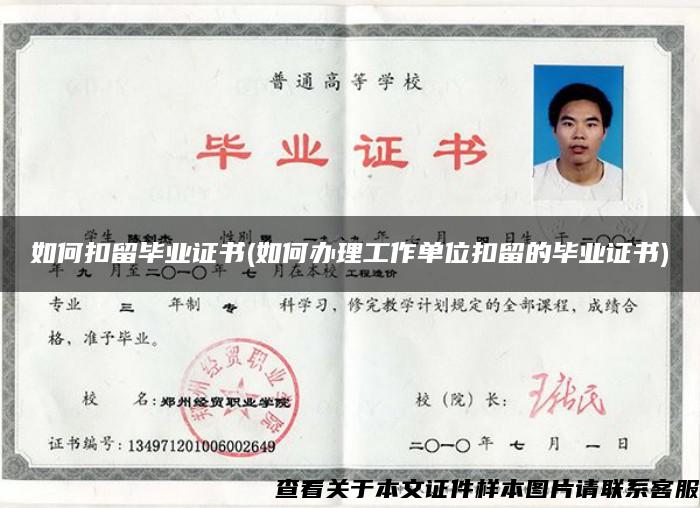 普通高等学校
毕业证书
学生 陈剑杰 性别 男 一九八九年 七月 四日生 于二〇〇七
如何扣留毕业证书(如何办理工作单位扣留的毕业证书)
年 九 月至二〇一〇年 七 月在本校 工程造价
专业 三 年制 专 科学习，修完教学计划规定的全部课程，成绩合
格，准予毕业。
校 名：郑州经贸职业学院
校（院）长：
郑州经贸职业学院
证书编号：134971201006002649
二〇一〇年 七 月 一 日
查看关于本文证件样本图片请联系客服